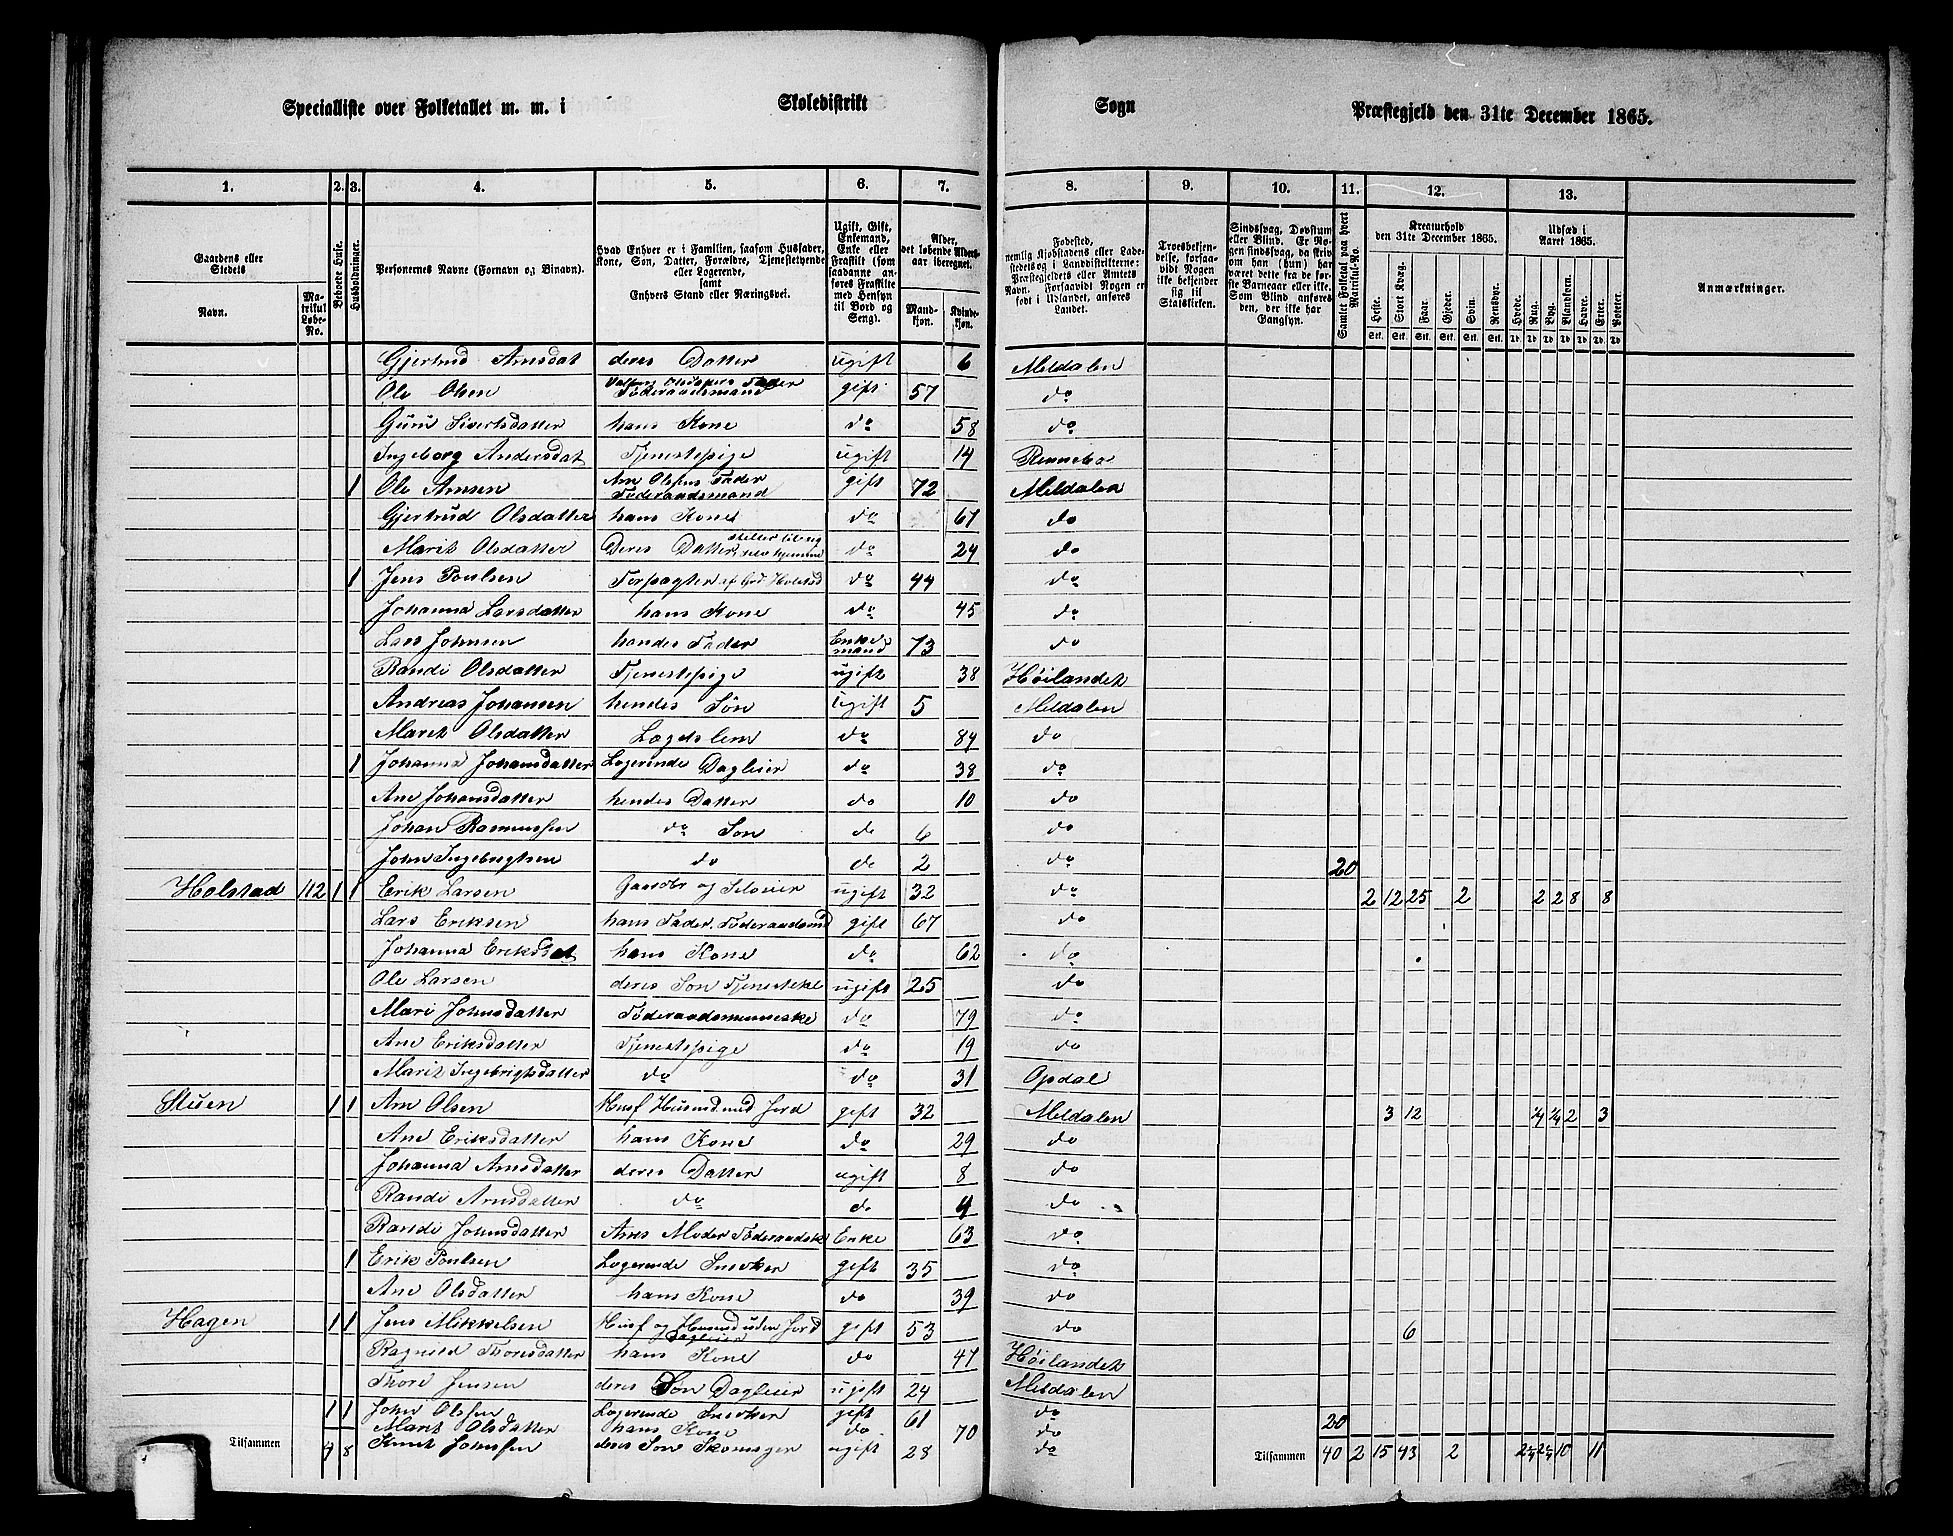 Specialliste over Folketallet m. m. i Skoledistrikt Sogn Præstegjeld den 31te December 1865.
1. 2. 3. 4. 5. 6. 7. 8. 9. 10. 11. 12. 13.
Gaardens eller Stedets
Navn.
Matrikul Løbe-No.
Beboede Huse.
Husholdninger.
Personernes Navne (Fornavn og Binavn).
Hvad Enhver er i Familien, saasom Husfader, Kone, Søn, Datter, Forældre, Tjenestetyende eller Logerende, samt Enhvers Stand eller Næringsvei.
Ugift, Gift, Enkemand, Enke eller Fraskilt (som saadanne anføres Fraskilte med Hensyn til Bord og Seng).
Alder, det løbende Aldersaar iberegnet.
Mandkjøn. Kvindekjøn.
Fødested, nemlig Kjøbstadens eller Ladestedets og i Landdistrikterne: Præstegjeldets eller Amtets Navn. Forsaavidt Nogen er født i Udlandet, anføres Landet.
Troesbekjendelse, forsaavidt Nogen ikke bekjender sig til Statskirken.
Sindssvag, Døvstum eller Blind. Er Nogen sindssvag, da skrives om han (hun) har været dette fra de første Barneaar eller ikke. Som Blind anføres den, der ikke har Gangsyn.
Samlet Folketal paa hvert Matrikul-No.
Kreaturhold den 31te December 1865.
Heste. Stort Kvæg. Faar. Gjeder. Svin. Rensdyr.
Udsæd i Aaret 1865.
Hvede. Rug. Byg. Blandkorn. Havre. Erter. Poteter.
Anmærkninger.
Gjertrud Arnsdat deres Datter ugift 6 Meldalen
Ole Olsen Føderaadsmand gift 57 do
Guru Sivertsdatter hans Kone do 58 do
Ingeborg Andersdat Tjenestepige ugift 14 Rennebo
1 Ole Arnsen Arn Olsens Fader Føderaadsmand gift 72 Meldalen
Gjertrud Olsdatter hans Kone do 67 do
Marit Olsdatter Deres Datter do 24 do
1 Jens Poulsen Forpagter af Gd. Holstad do 44 do
Johanna Larsdatter hans Kone do 45 do
Lars Johnsen hendes Fader Enkemand 73 do
Randi Olsdatter Tjenestepige ugift 38 Høilandet
Andreas Johansen hendes Søn ugift 5 Meldalen
Marit Olsdatter Lægdslem do 84 do
1 Johanna Johansdatter Logerende Dagleier do 38 do
Ane Johansdatter hendes Datter do 10 do
Johan Rasmussen do Søn do 6 do
John Ingebrigtsen do do 2 do 20
Holstad 112 1 1 Erik Larsen Gaardbr og Selveier ugift 32 do 2 12 25 2 2 2 8 8
Lars Eriksen hans Fader Føderaadsmd gift 67 do
Johanna Eriksdat hans Kone do 62 do
Ole Larsen deres Søn Tjenestekl ugift 25 do
Mari Johnsdatter Føderaadsmenneske do 79 do
Ane Eriksdatter Tjenestepige do 19 do
Marit Ingebrigtsdatter do do 31 Opdal
Stuen 1 1 Arn Olsen Husf Husmd med Jord gift 32 Meldalen 3 12 1/4 1/4 2 3
Ane Eriksdatter hans Kone do 29 do
Johanna Arnsdatter deres Datter ugift 8 do
Randi Arnsdatter do do 4 do
Randi Johnsdatter Arns Moder Føderaadsk Enke 63 do
1 Erik Poulsen Logerende Snedker gift 35 do
Ane Olsdatter hans Kone do 39 do
Hagen 1 1 Jens Mikkelsen Husf og Husmd uden Jord Dagleier gift 53 do 6
Ragnild Thoresdatter hans Kone do 47 Høilandet
Thore Jensen deres Søn Dagleier ugift 24 Meldalen
1 1 John Olssen Logerende Snedker gift 61 do
Marit Olsdatter hans Kone do 70 do 20
Knut Johnssen deres Søn Skomager ugift 28 do
Tilsammen 4 8 Tilsammen 40 2 15 43 2 2 1/4 2 1/4 10 11